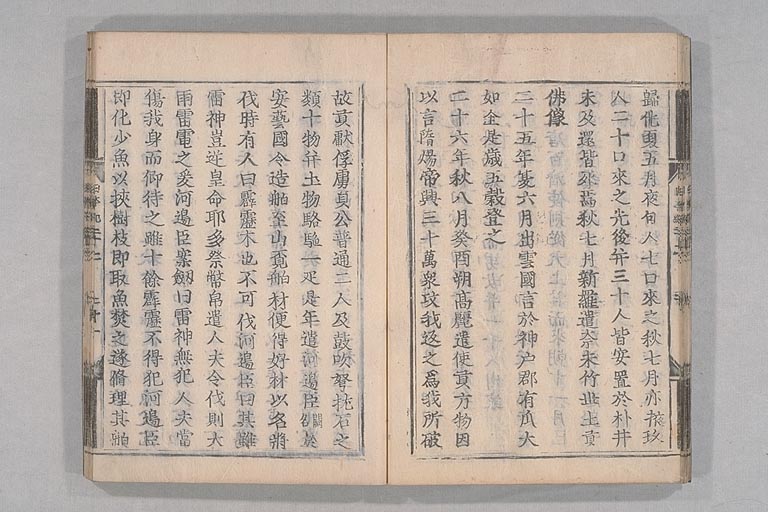 歸化夏五月夜句人七口來之秋七月亦掖玖
人二十口來之先後幷三十人皆安置於朴井
未及還皆死焉秋七月新羅遣奈末竹世士貢
佛像
二十五年夏六月出雲國言於神戶郡有瓜大
如缶是歲五穀登之
二十六年秋八月癸酉朔高麗遣使貢方物因
以言隋煬帝興三十萬衆攻我返之爲我所破
故貢獻俘虜貞公普通二人及鼓吹弩抛石之
類十物幷土物駱駝一疋是年遣河邊臣闕名於
安藝國令造舶至山覓舶材便得好材以名將
伐時有人曰霹靂木也不可伐河邊臣曰其雖
雷神豈逆皇命耶多祭幣帛遣人夫令伐則大
雨雷電之爰河邊臣案劒曰雷神無犯人夫當
傷我身而仰待之雖十餘霹靂不得犯河邊臣
即化少魚以挾樹枝即取魚焚之遂脩理其舶